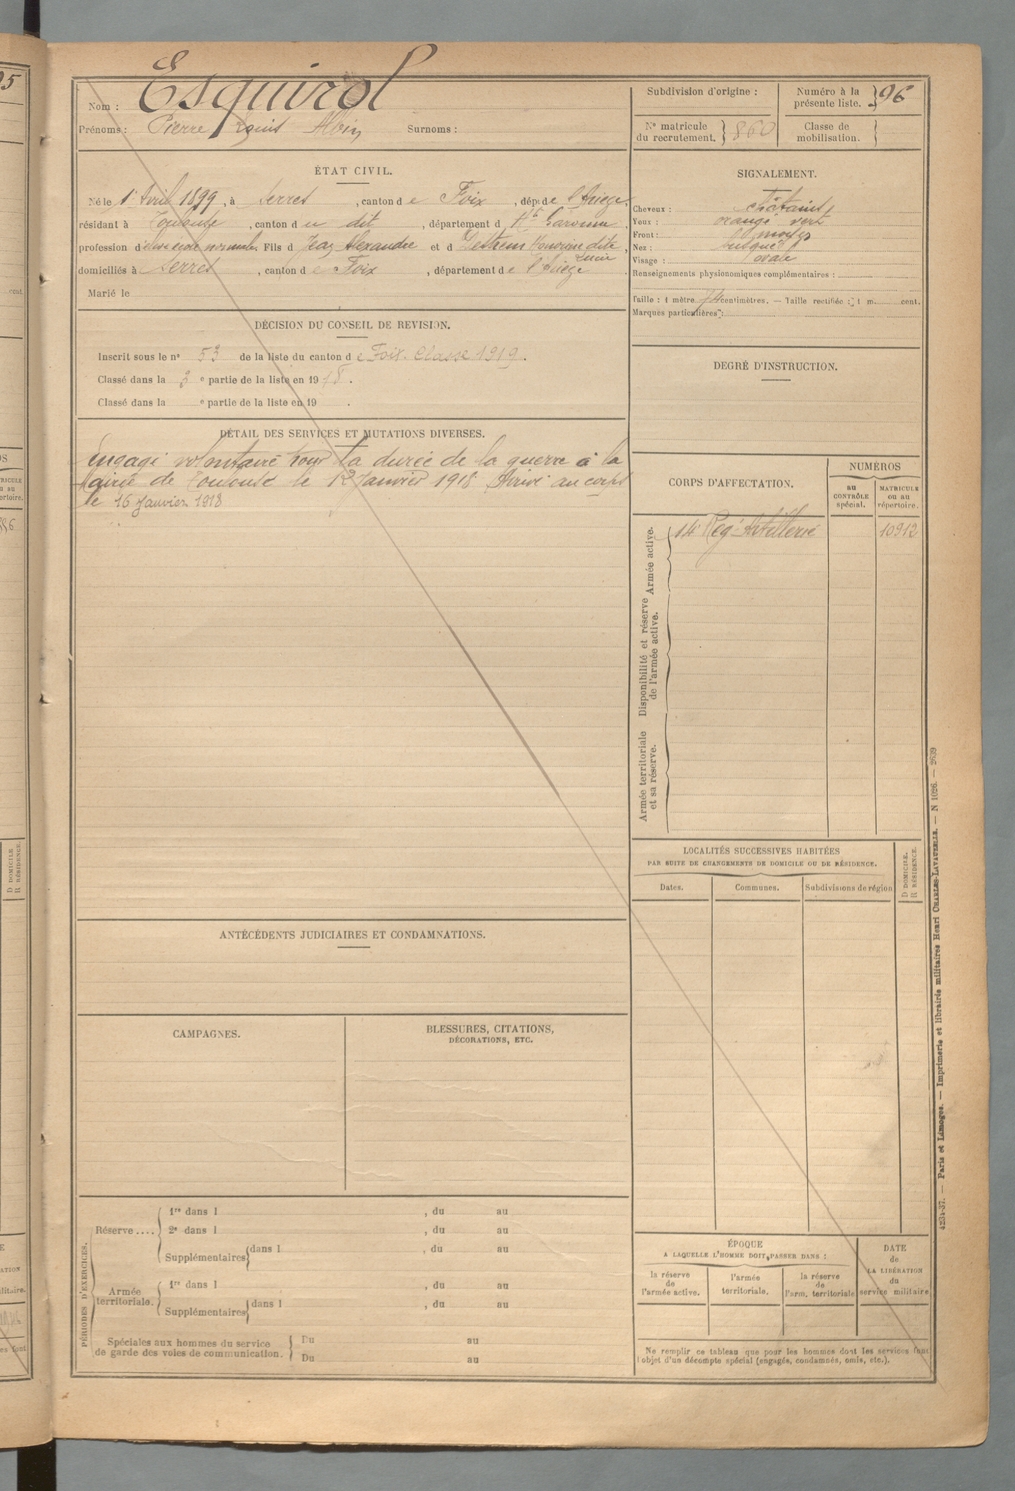 Nom : Esquirol
Prénoms : Pierre Louis Albin Surnoms :
Subdivision d'origine :
Numéro à la présente liste. 96
N° matricule du recrutement. 860
Classe de mobilisation.
ÉTAT CIVIL.
Né le 1 Avril 1899, à Serres, canton de Foix, dép. de l'Ariège,
résidant à Toulouse, canton du dit, département d Hte Garonne,
profession d'élève école normale, Fils d Jean Alexandre et d Honorine dite
domiciliés à Serres, canton de Foix, département de l'Ariège.
Marié le
DÉCISION DU CONSEIL DE REVISION.
Inscrit sous le n° 53 de la liste du canton de Foix. Classe 1919.
Classé dans la 3e partie de la liste en 1918.
Classé dans la e partie de la liste en 19 .
DÉTAIL DES SERVICES ET MUTATIONS DIVERSES.
Engagé volontaire pour la durée de la guerre à la
Mairie de Toulouse le 12 Janvier 1918 Arrivé au corps
le 16 Janvier 1918
ANTÉCÉDENTS JUDICIAIRES ET CONDAMNATIONS.
CAMPAGNES.
BLESSURES, CITATIONS,
DÉCORATIONS, ETC.
PÉRIODES D'EXERCICES.
Réserve ....
1re dans l , du au
2e dans l , du au
Supplémentaires dans l , du au
Armée territoriale.
1re dans l , du au
Supplémentaires dans l , du au
Spéciales aux hommes du service
de garde des voies de communication.
Du au
Du au
SIGNALEMENT.
Cheveux : châtains
Yeux : orangé vert
Front : moyen
Nez : busqué
Visage : ovale
Renseignements physionomiques complémentaires :
Taille : 1 mètre 74 centimètres. — Taille rectifiée : 1 m. cent.
Marques particulières :
DEGRÉ D'INSTRUCTION.
CORPS D'AFFECTATION.
NUMÉROS
au CONTRÔLE spécial.
MATRICULE ou au répertoire.
Armée active.
14e Régt Artillerie 10912
Disponibilité et réserve
de l'armée active.
Armée territoriale
et sa réserve.
LOCALITÉS SUCCESSIVES HABITÉES
PAR SUITE DE CHANGEMENTS DE DOMICILE OU DE RÉSIDENCE.
Dates. Communes. Subdivisions de région
D DOMICILE.
R RÉSIDENCE.
ÉPOQUE
A LAQUELLE L'HOMME DOIT PASSER DANS :
la réserve de l'armée active.
l'armée territoriale.
la réserve de l'arm. territoriale
DATE de LA LIBÉRATION du service militaire
Ne remplir ce tableau que pour les hommes dont les services font
l'objet d'un décompte spécial (engagés, condamnés, omis, etc.).
4234-37. — Paris et Limoges. — Imprimerie et librairie militaires Henri CHARLES-LAVAUZELLE. — N 1026. — 2639